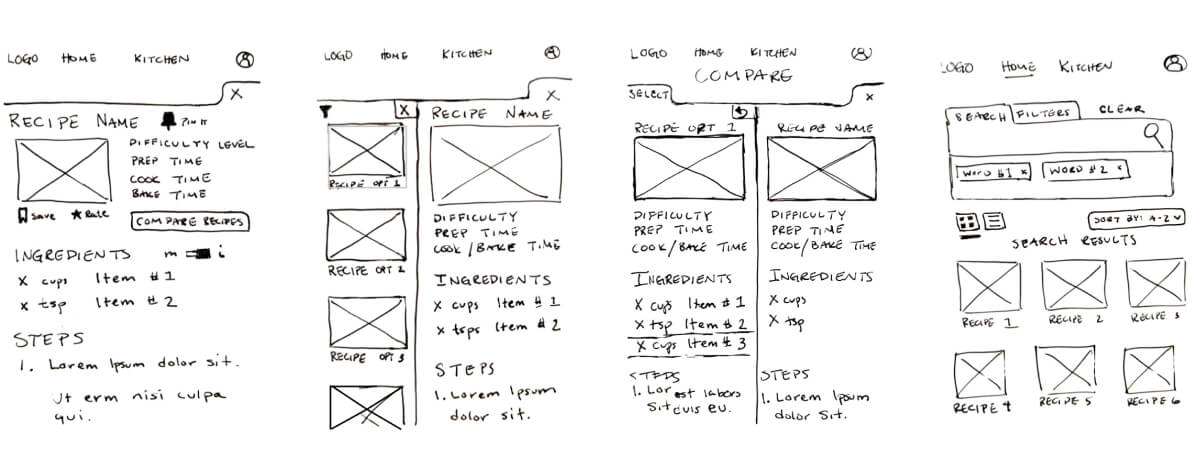 LOGO HOME KITCHEN
X
RECIPE NAME PIN IT
DIFFICULTY LEVEL
PREP TIME
COOK TIME
BAKE TIME
Save Rate
COMPARE RECIPES
INGREDIENTS m i
X cups Item #1
X tsp Item #2
STEPS
1. Lorem Ipsum dolor sit.
Ut erm nisi culpa
qui.
LOGO HOME KITCHEN
X
X
RECIPE OPT 1
RECIPE OPT 2
RECIPE OPT 3
RECIPE NAME
DIFFICULTY
PREP TIME
COOK/BAKE TIME
INGREDIENTS
X cups Item #1
X tsps Item #2
STEPS
1. Lorem Ipsum
dolor sit.
LOGO HOME KITCHEN
COMPARE
SELECT
X
RECIPE OPT 1
DIFFICULTY
PREP TIME
COOK/BAKE TIME
INGREDIENTS
X cups Item #1
X tsp Item #2
X cups Item #3
STEPS
1. Lor est labors
Sit cuis eu.
RECIPE NAME
DIFFICULTY
PREP TIME
COOK/BAKE TIME
INGREDIENTS
X cups
X tsp
STEPS
1. Lorem Ipsum
dolor Sit.
LOGO HOME KITCHEN
SEARCH FILTERS CLEAR
WORD #1 x WORD #2 x
SORT BY: A-Z
SEARCH RESULTS
RECIPE 1 RECIPE 2 RECIPE 3
RECIPE 4 RECIPE 5 RECIPE 6